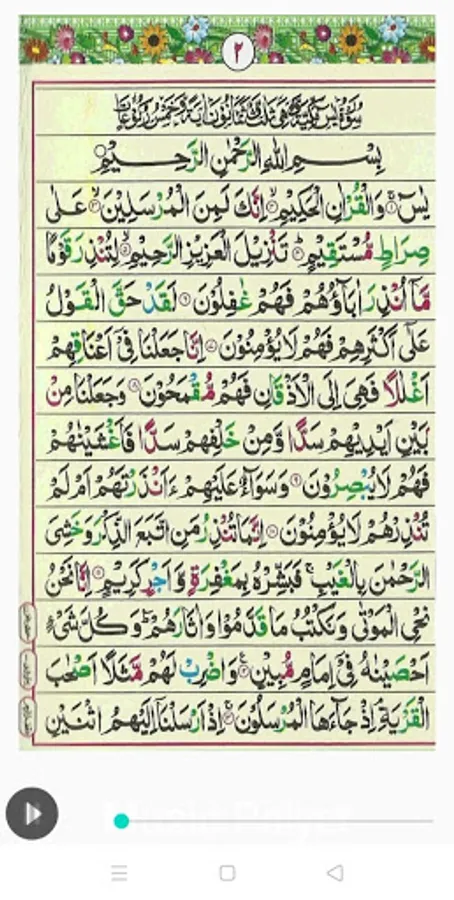 ٢
سُوْرَةُ يٰسٓ مَكِّيَّةٌ وَّهِيَ ثَلٰثٌ وَّثَمَانُوْنَ اٰيَةً وَّخَمْسُ رُكُوْعَاتٍ
بِسْمِ اللّٰهِ الرَّحْمٰنِ الرَّحِيْمِ
يٰسٓ ۚ۝١ وَالْقُرْاٰنِ الْحَكِيْمِ ۙ۝٢ اِنَّكَ لَمِنَ الْمُرْسَلِيْنَ ۙ۝٣ عَلٰى
صِرَاطٍ مُّسْتَقِيْمٍ ؕ۝٤ تَنْزِيْلَ الْعَزِيْزِ الرَّحِيْمِ ۙ۝٥ لِتُنْذِرَ قَوْمًا
مَّاۤ اُنْذِرَ اٰبَآؤُهُمْ فَهُمْ غٰفِلُوْنَ ۝٦ لَقَدْ حَقَّ الْقَوْلُ
عَلٰۤى اَكْثَرِهِمْ فَهُمْ لَا يُؤْمِنُوْنَ ۝٧ اِنَّا جَعَلْنَا فِيْۤ اَعْنَاقِهِمْ
اَغْلٰلًا فَهِيَ اِلَى الْاَذْقَانِ فَهُمْ مُّقْمَحُوْنَ ۝٨ وَجَعَلْنَا مِنْۢ
بَيْنِ اَيْدِيْهِمْ سَدًّا وَّمِنْ خَلْفِهِمْ سَدًّا فَاَغْشَيْنٰهُمْ
فَهُمْ لَا يُبْصِرُوْنَ ۝٩ وَسَوَآءٌ عَلَيْهِمْ ءَاَنْذَرْتَهُمْ اَمْ لَمْ
تُنْذِرْهُمْ لَا يُؤْمِنُوْنَ ۝١٠ اِنَّمَا تُنْذِرُ مَنِ اتَّبَعَ الذِّكْرَ وَخَشِيَ
الرَّحْمٰنَ بِالْغَيْبِ ۚ فَبَشِّرْهُ بِمَغْفِرَةٍ وَّاَجْرٍ كَرِيْمٍ ۝١١ اِنَّا نَحْنُ
نُحْيِ الْمَوْتٰى وَنَكْتُبُ مَا قَدَّمُوْا وَاٰثَارَهُمْ ؕ وَكُلَّ شَيْءٍ
اَحْصَيْنٰهُ فِيْۤ اِمَامٍ مُّبِيْنٍ ۝١٢ وَاضْرِبْ لَهُمْ مَّثَلًا اَصْحٰبَ
الْقَرْيَةِ ۘ اِذْ جَآءَهَا الْمُرْسَلُوْنَ ۝١٣ اِذْ اَرْسَلْنَاۤ اِلَيْهِمُ اثْنَيْنِ